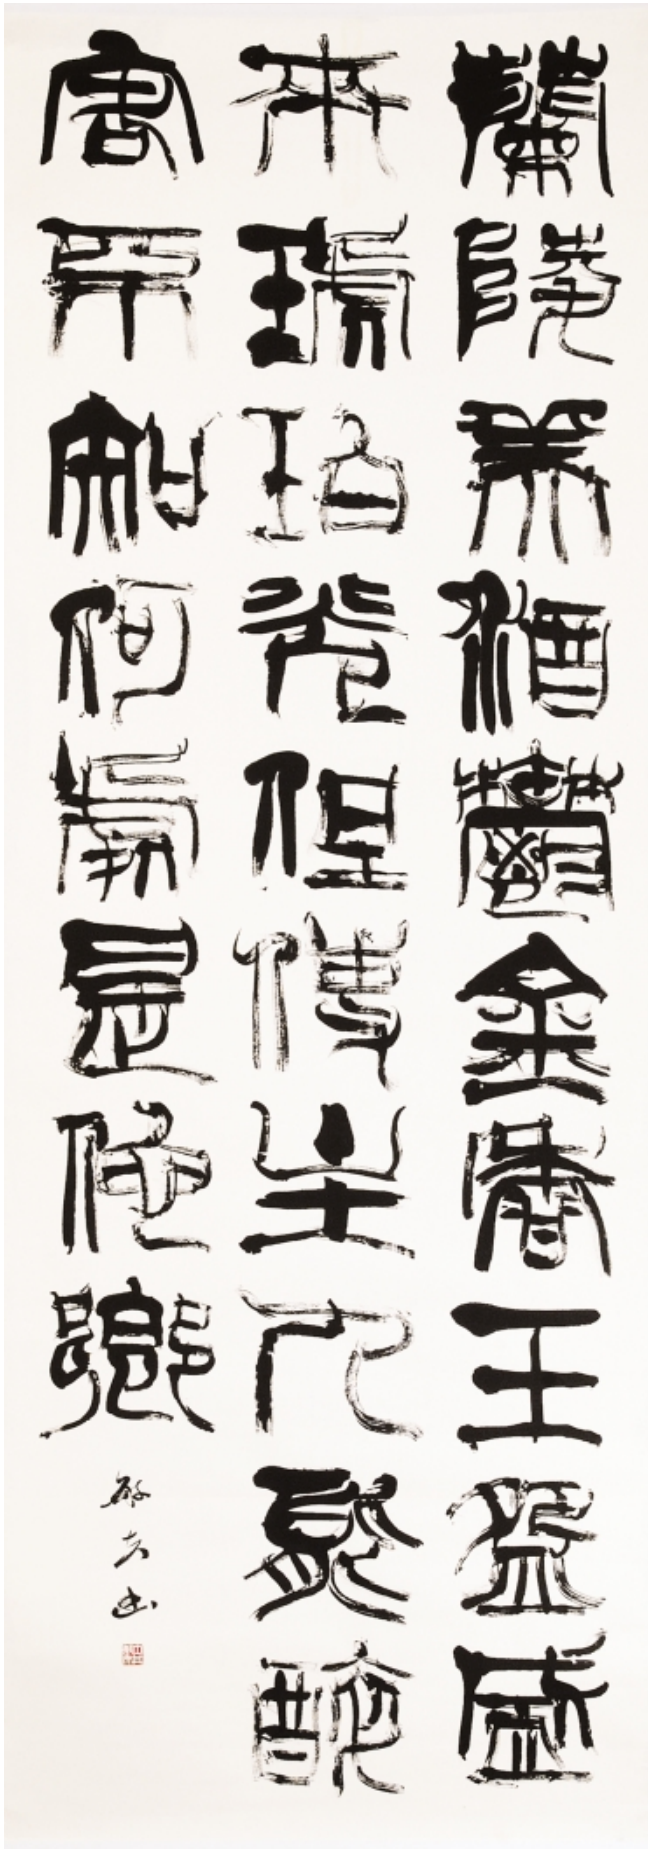 蘭陵美酒鬱金香玉盌盛
來琥珀光但使主人能醉
客不知何處是他鄉
書